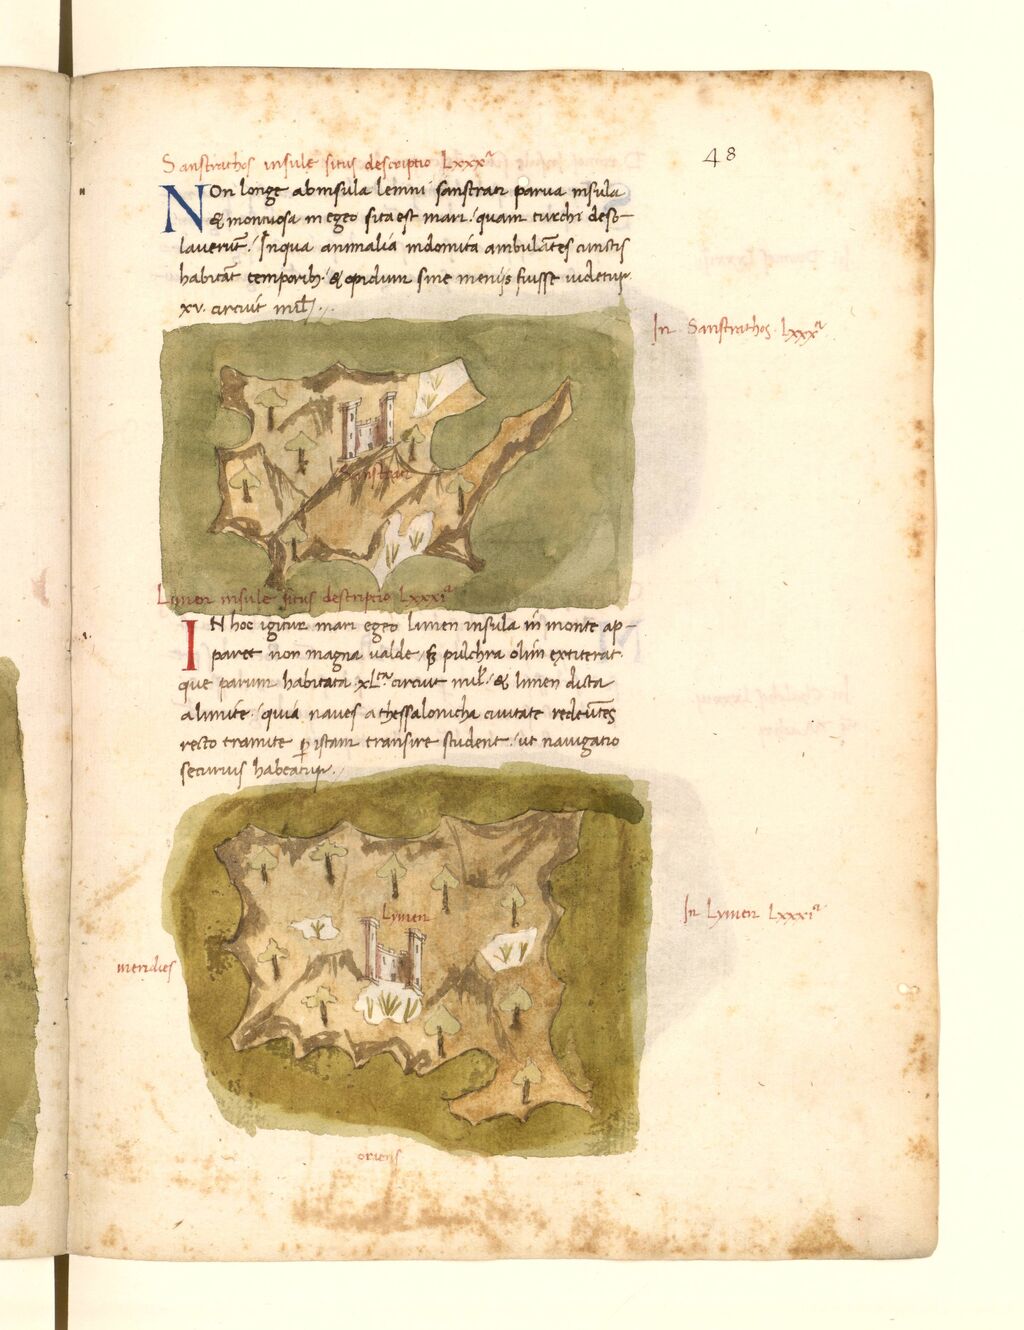 48
Sanstrathos insule situs descriptio Lxxxª
NOn longe ab insula lemni sanstrati parua insula
& montuosa in egeo sita est mari. quam turchi deso-
lauerūt. Inqua animalia indomita ambulātes cunctis
habitāt temporib; & opidum sine menijs fuisse uidetur.
xv. circuit mil̄.
In Sanstrathos. Lxxxª
Sanstrati
Limen insule situs descriptio Lxxxiª
IN hoc igitur mari egeo limen insula in monte ap-
paret non magna ualde, sȝ pulchra olim extiterat.
que parum habitata. xL. circuit mil̄. & limen dicta
alimite. quia naues athessalonicha ciuitate redeūtes
recto tramite ꝑ istam transire student. ut nauigatio
securius habeatur.
Lymen
In Lymen Lxxxiª
meridies
oriens